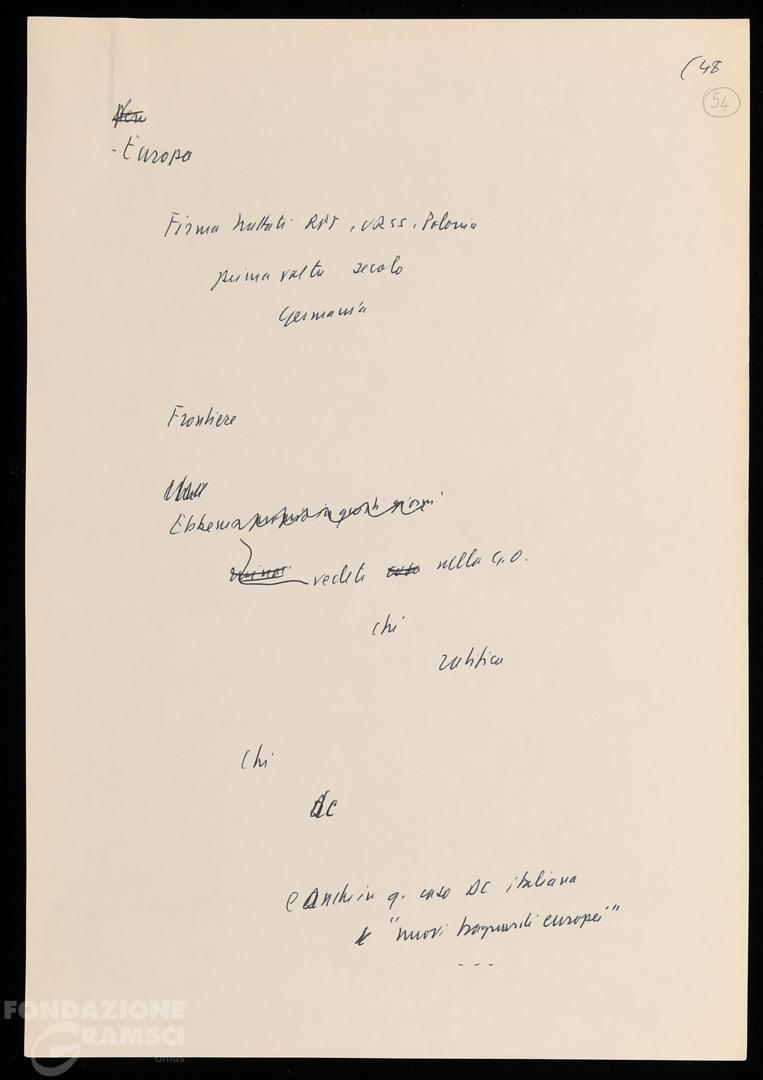 (48
54
- Europa
Firma trattati RFT, URSS, Polonia
prima volta secolo
Germania
Frontiere
Ebbene proprio in questi giorni
vedete nella G.O.
chi
ratifica
Chi
DC
e Anche in q. caso DC italiana
"nuovi traguardi europei"
---
FONDAZIONE
GRAMSCI
onlus